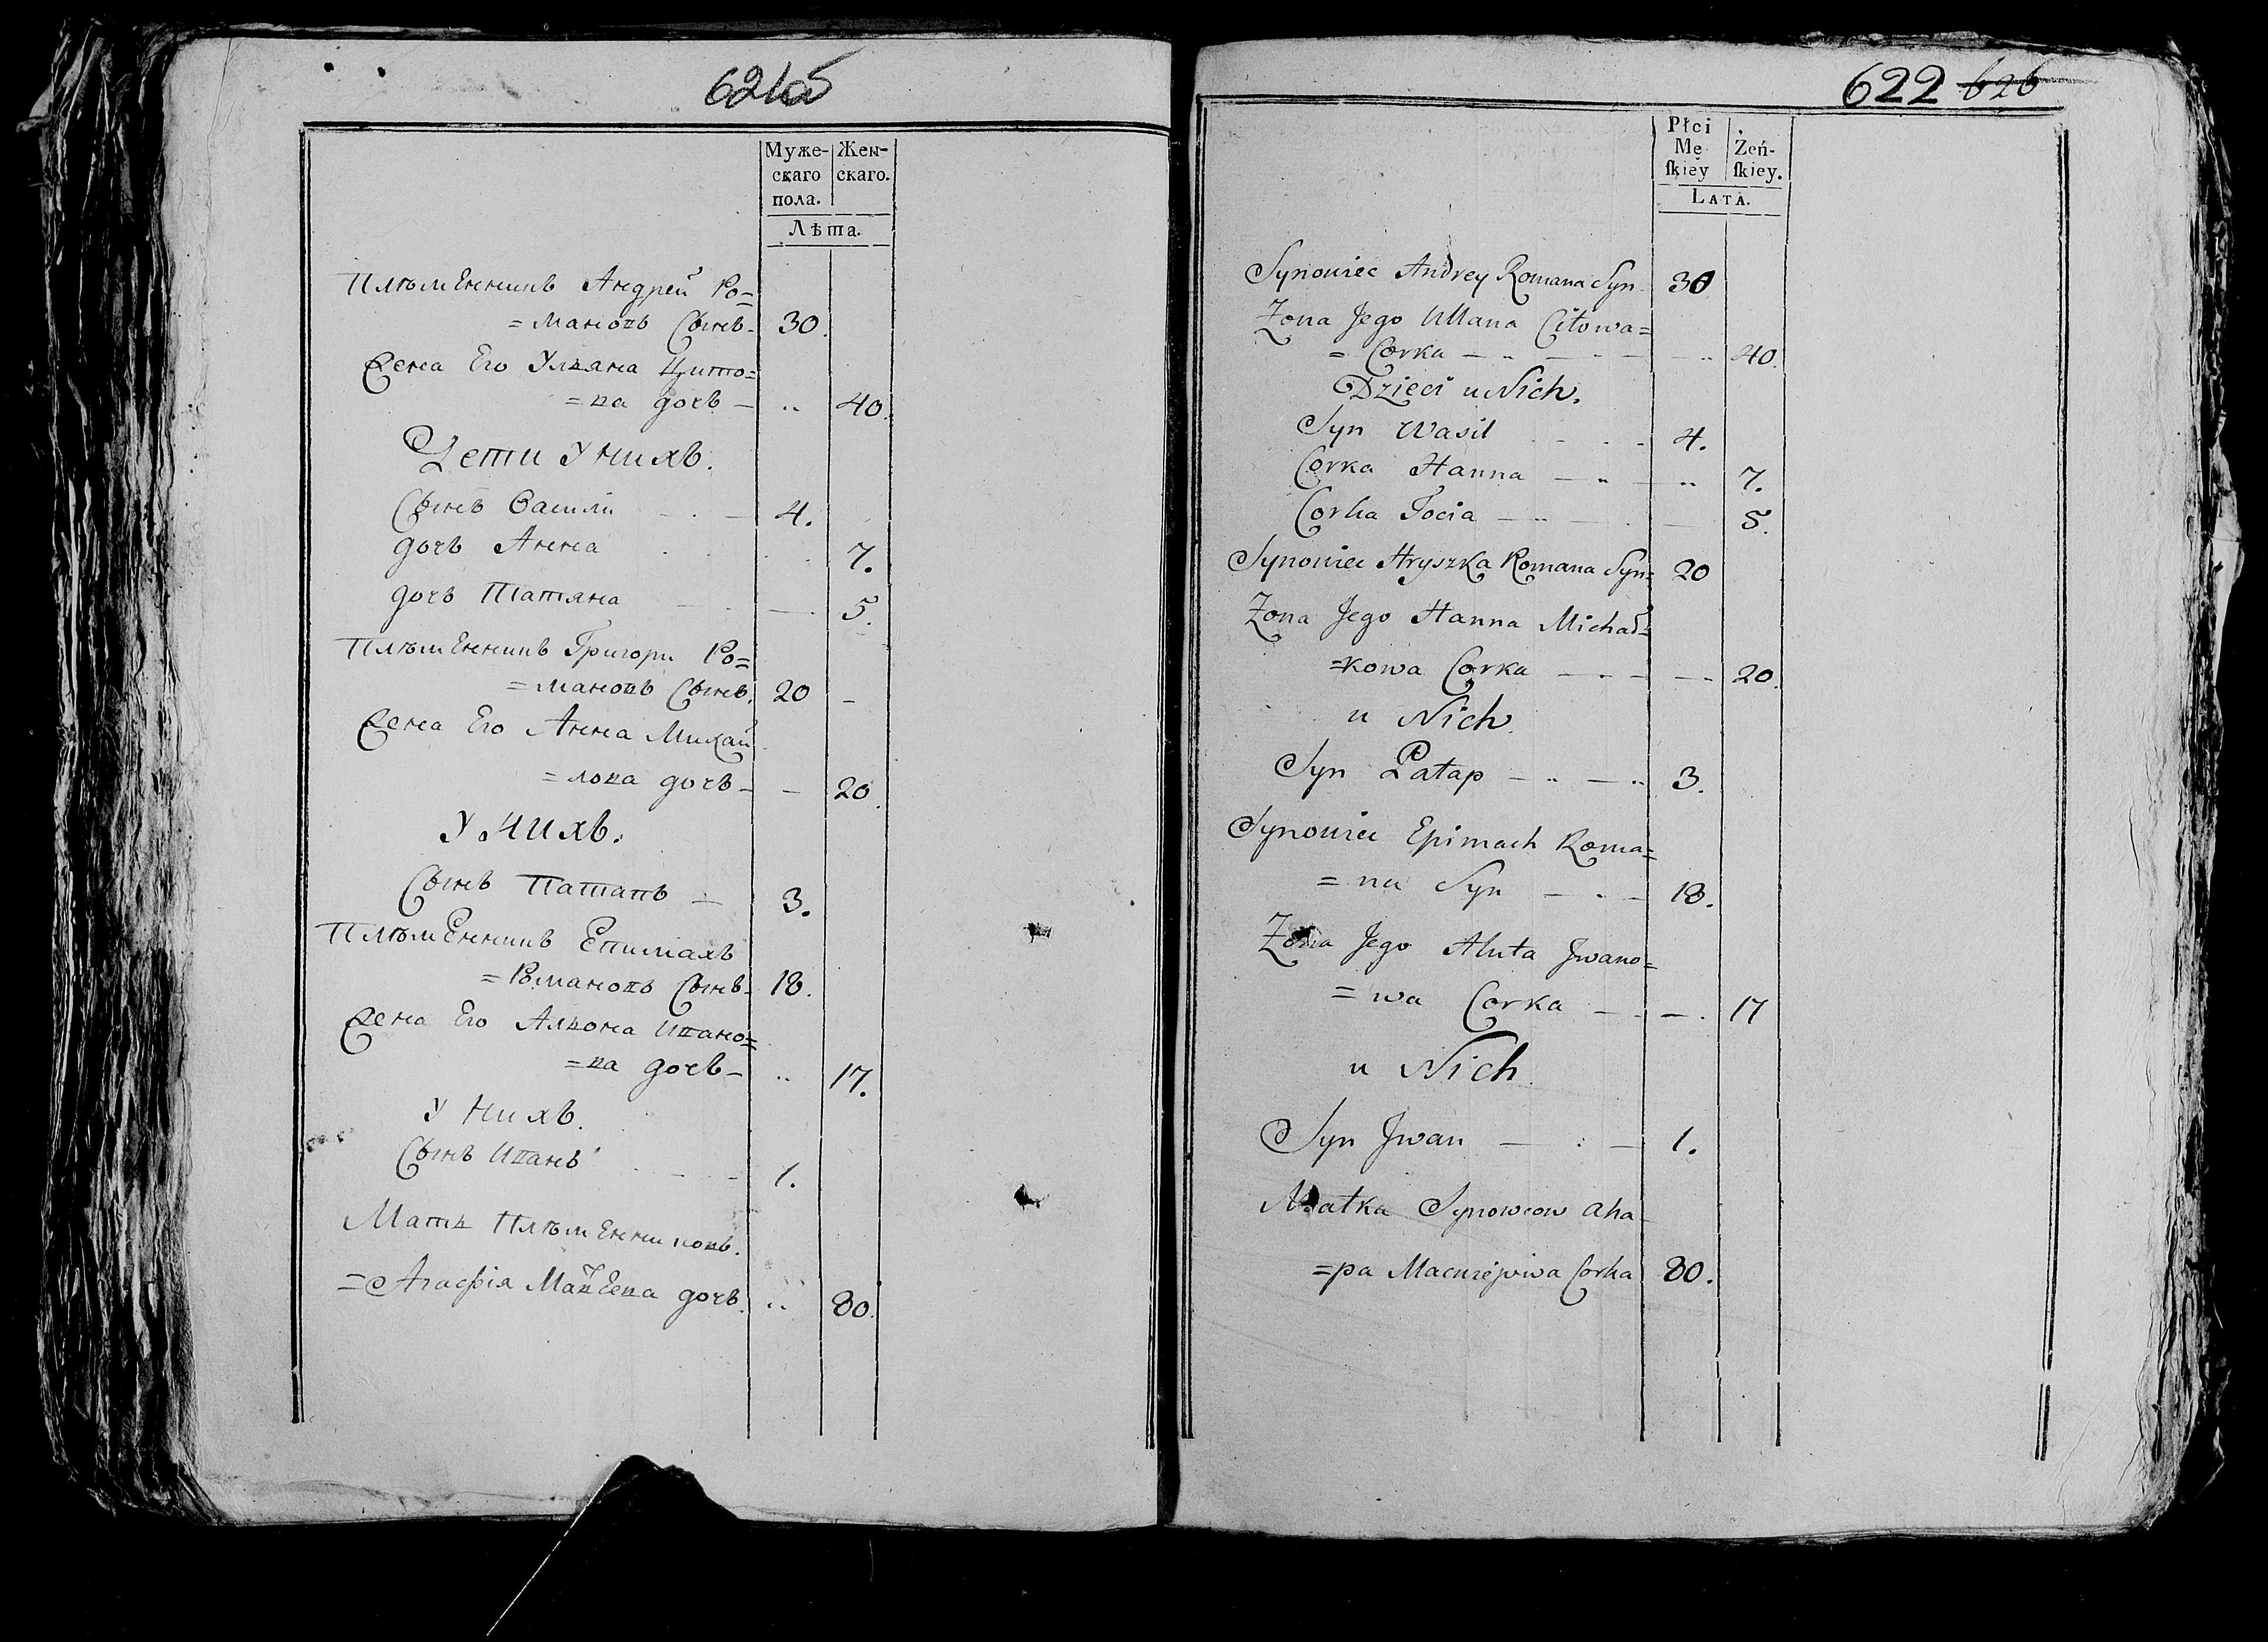 621об
Муже-
скаго
пола.
Жен-
скаго.
Лѣта.
Плѣмянникъ Андрей Ро=
=мановъ Сынъ 30.
Жена Его Улляна Цито=
=ва дочь — 40.
Дети У нихъ.
Сынъ Васили 4.
дочь Анна 7.
дочь Татяна 5.
Плѣмянникъ Григори Ро=
=мановъ Сынъ. 20
Жена Его Анна Михай
=лова дочь — 20.
У Нихъ.
Сынъ Патапъ — 3.
Плѣмянникъ Епимахъ
=Романовъ Сынъ 18.
Жена Его Алиона Ивано=
=ва дочь — 17.
У Нихъ.
Сынъ Иванъ 1.
Мать Плѣмянниковъ.
=Агафія дочь. 80.
622 626
Płci
Mę
ſkiey
Żeń-
ſkiey.
LATA.
Synowiec Andrey Romana Syn 30
Zona Jego Ullana Citowa=
= Corka — 40.
Dzieci u Nich.
Syn Wasil 4.
Corka Hanna — 7.
Corka Tocia — 5.
Synowiec Hryszka Romana Syn= 20
Zona Jego Hanna Michał=
=kowa Corka — 20.
u Nich.
Syn Patap — 3.
Synowiec Epimach Roma=
=na Syn — 18.
Zona Jego Aluta Jwano=
=wa Corka — 17
u Nich.
Syn Jwan — 1.
Matka Synowcow Aha=
=pa Corka 80.